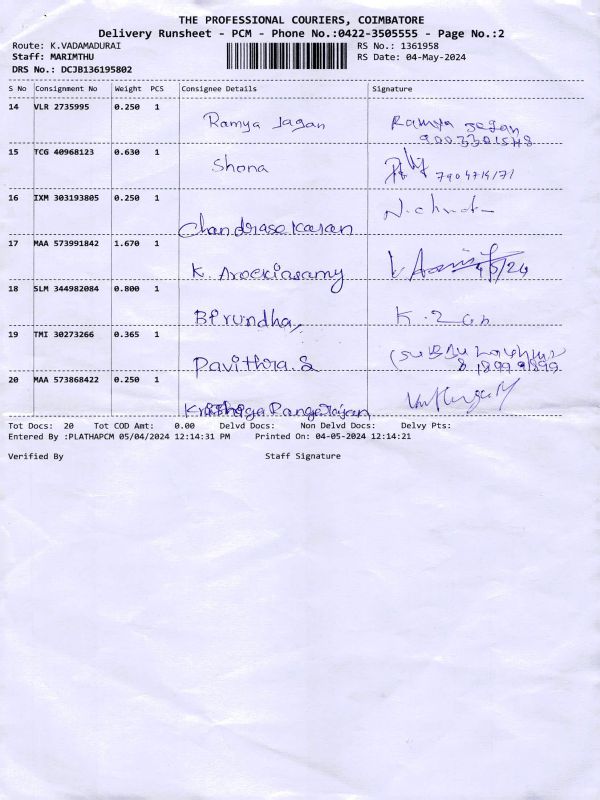 THE PROFESSIONAL COURIERS, COIMBATORE
Delivery Runsheet - PCM - Phone No.:0422-3505555 - Page No.:2
Route: K.VADAMADURAI RS No.: 1361958
Staff: MARIMTHU RS Date: 04-May-2024
DRS No.: DCJB136195802
S No Consignment No Weight PCS Consignee Details Signature
14 VLR 2735995 0.250 1 Ramya Jagan Ramya Jegan
9003301548
15 TCG 40968123 0.630 1 Shona
16 IXM 303193805 0.250 1 Chandrasekaran
17 MAA 573991842 1.670 1 K. Arockiasamy
18 SLM 344982084 0.800 1 Birundha
19 TMI 30273266 0.365 1 Pavithra.S
20 MAA 573868422 0.250 1
Tot Docs: 20 Tot COD Amt: 0.00 Delvd Docs: Non Delvd Docs: Delvy Pts:
Entered By :PLATHAPCM 05/04/2024 12:14:31 PM Printed On: 04-05-2024 12:14:21
Verified By Staff Signature